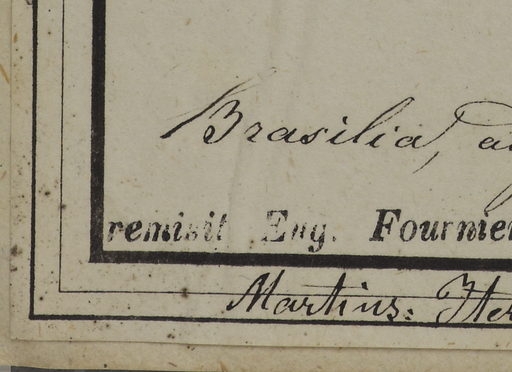 Brasilia,
remisit Eug. Fournier
Martius: Iter